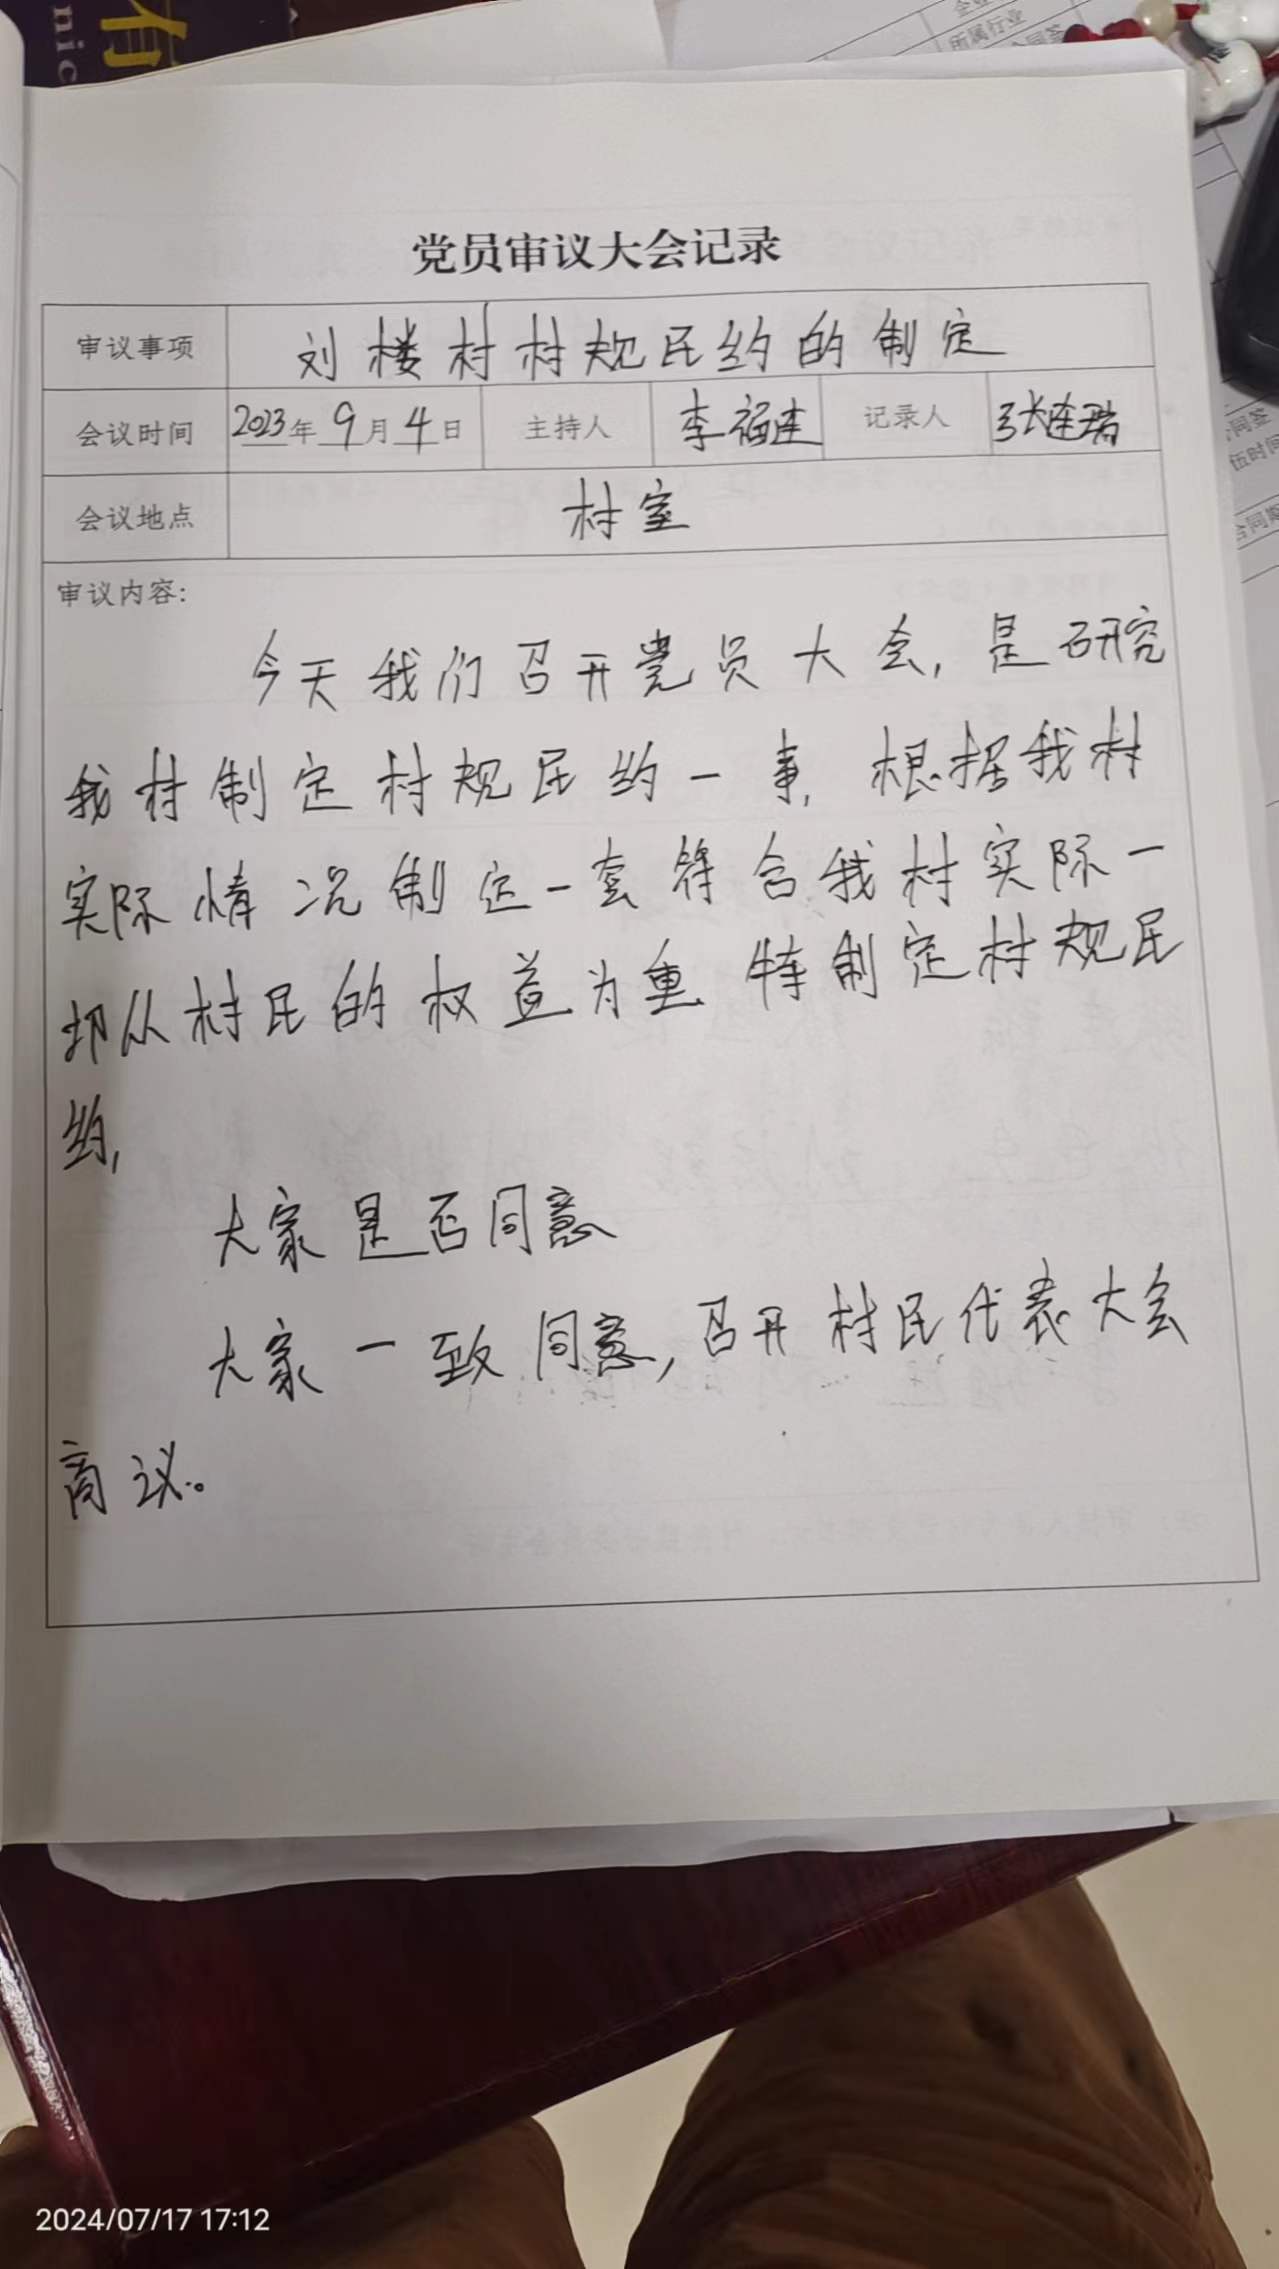 有
nic
企业
所属行业
合同签
党员审议大会记录
审议事项 刘楼村村规民约的制定
会议时间 2023年9月4日 主持人 李福建 记录人 张连瑞
会议地点 村室
审议内容:
今天我们召开党员大会,是研究
我村制定村规民约一事,根据我村
实际情况制定一套符合我村实际一
切从村民的权益为重 特制定村规民
约,
大家是否同意
大家一致同意,召开村民代表大会
商议。
同签
伍时间
合同期
2024/07/17 17:12